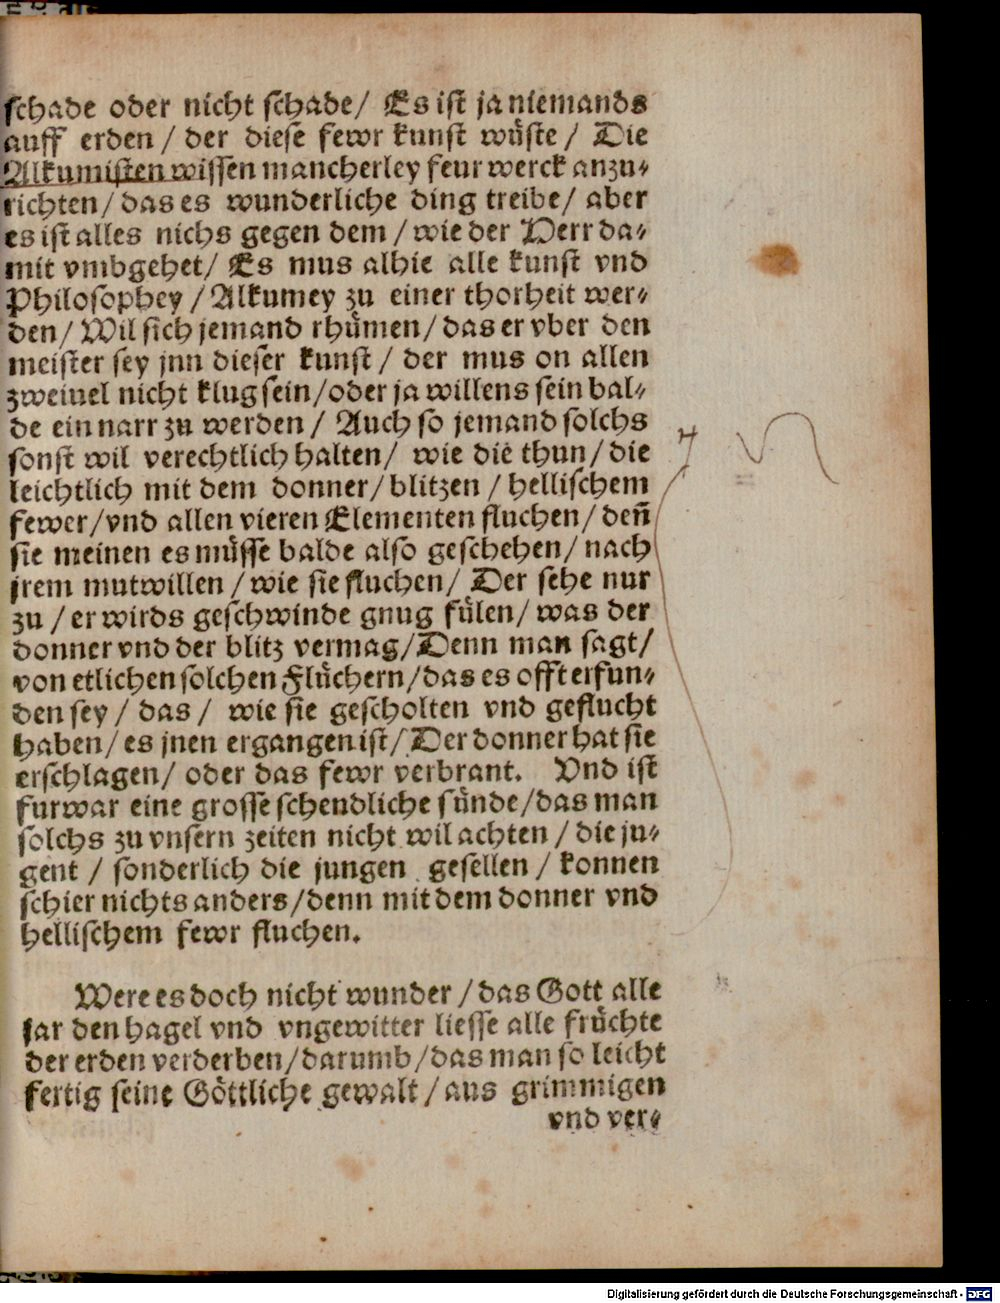 schade oder nicht schade/ Es ist ja niemands
auff erden / der diese fewr kunst wüste / Die
Alkumisten wissen mancherley feur werck anzu-
richten/ das es wunderliche ding treibe/ aber
es ist alles nichs gegen dem / wie der Herr da-
mit vmbgehet/ Es mus alhie alle kunst vnd
Philosophey / Alkumey zu einer thorheit wer-
den/ Wil sich jemand rhümen/ das er vber den
meister sey jnn dieser kunst / der mus on allen
zweiuel nicht klug sein/ oder ja willens sein bal-
de ein narr zu werden / Auch so jemand solchs
sonst wil verechtlich halten/ wie die thun/ die
leichtlich mit dem donner/ blitzen / hellischem
fewer/ vnd allen vieren Elementen fluchen/ deñ
sie meinen es müsse balde also geschehen/ nach
jrem mutwillen / wie sie fluchen/ Der sehe nur
zu / er wirds geschwinde gnug fülen/ was der
donner vnd der blitz vermag/ Denn man sagt/
von etlichen solchen Flüchern/ das es offt erfun-
den sey / das / wie sie gescholten vnd geflucht
haben/ es jnen ergangen ist/ Der donner hat sie
erschlagen/ oder das fewr verbrant. Vnd ist
furwar eine grosse schendliche sünde/ das man
solchs zu vnsern zeiten nicht wil achten / die ju-
gent / sonderlich die jungen gesellen / konnen
schier nichts anders/ denn mit dem donner vnd
hellischem fewr fluchen.
Were es doch nicht wunder / das Gott alle
jar den hagel vnd vngewitter liesse alle früchte
der erden verderben/ darumb/ das man so leicht
fertig seine Göttliche gewalt / aus grimmigen
vnd ver-
Digitalisierung gefördert durch die Deutsche Forschungsgemeinschaft - DFG